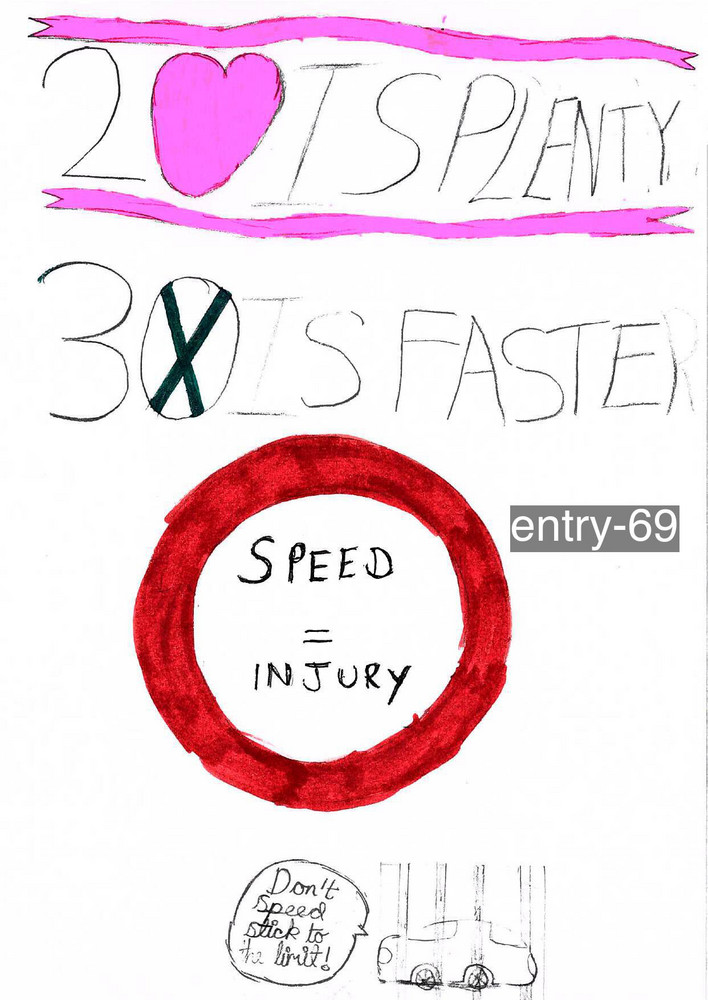 20 IS PLENTY
30 IS FASTER
entry-69
SPEED
=
INJURY
Don't
speed
stick to
the limit!